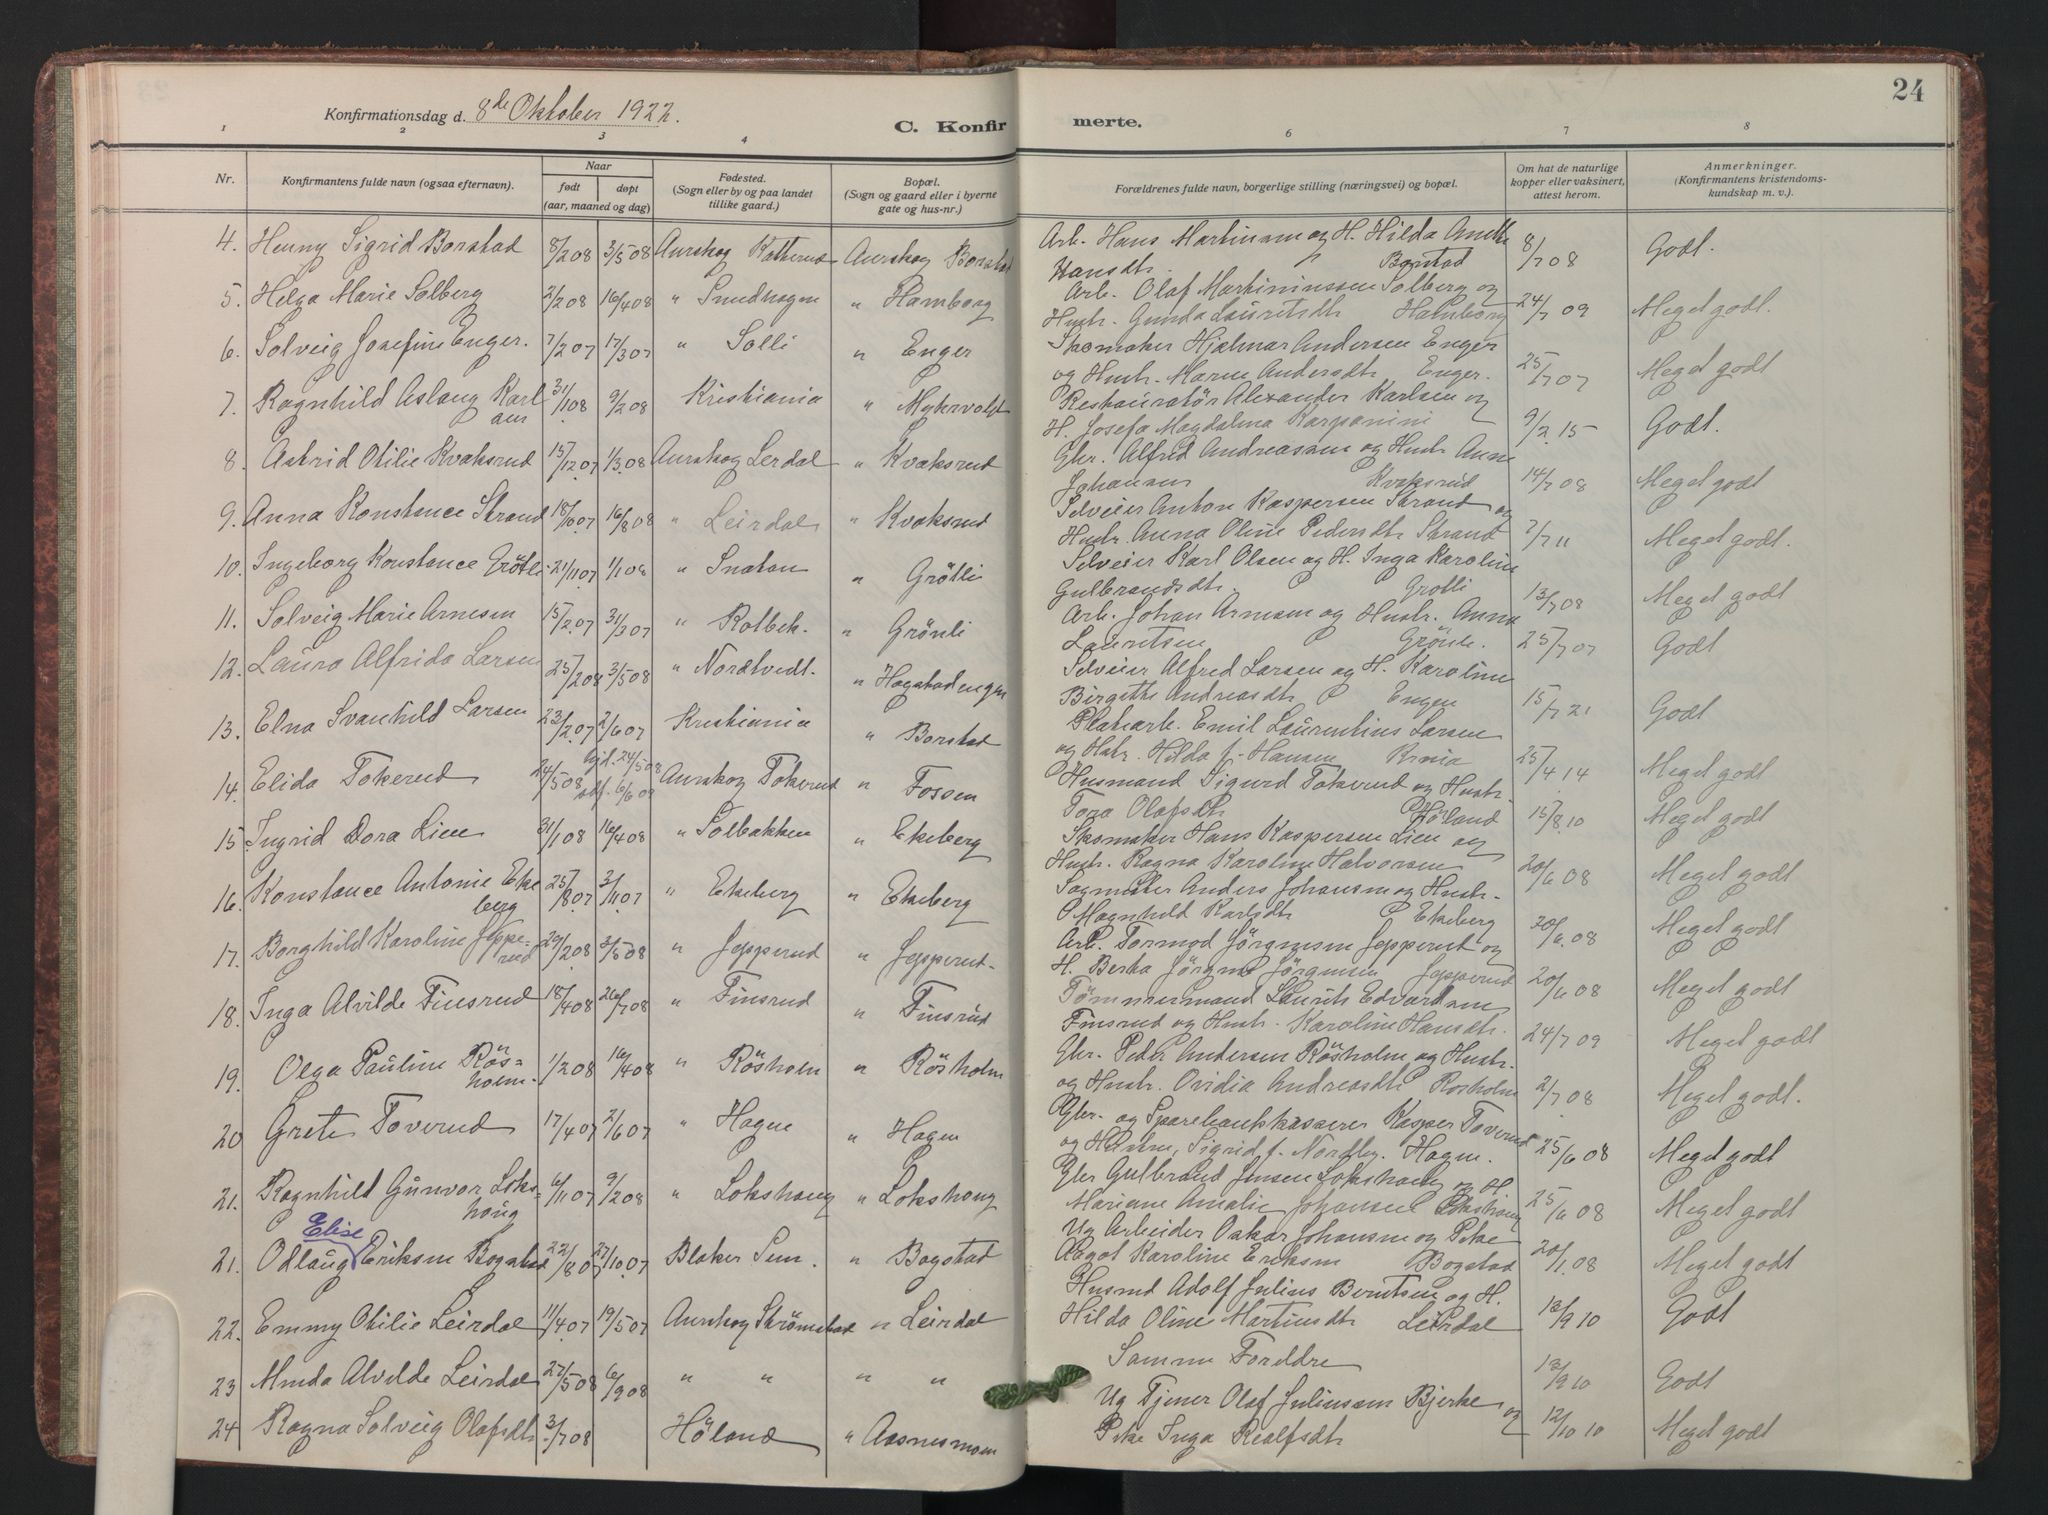 24
Konfirmationsdag d. 8de Oktober 1922.
C. Konfir merte.
1 2 3 4 6 7 8
Nr. Konfirmantens fulde navn (ogsaa efternavn). Naar født døpt (aar, maaned og dag) Fødested. (Sogn eller by og paa landet tillike gaard.) Bopæl. (Sogn og gaard eller i byerne gate og hus-nr.) Forældrenes fulde navn, borgerlige stilling (næringsvei) og bopæl. Om hat de naturlige kopper eller vaksinert, attest herom. Anmerkninger. (Konfirmantens kristendomskundskap m. v.).
4. Henny Sigrid Borstad 8/2 08 3/5 08 Aurskog Aurskog Borstad Arb. Hans Martinsen og H. Hilda Hansdtr. Borstad 8/7 08 Godt.
5. Helga Marie Solberg 2/2 08 16/4 08 " " Hamborg Arb. Olaf Martininssen Solberg og Hustr. Gunda Lauritsdtr Hamborg 24/7 09 Meget godt.
6. Solveig Josefine Enger. 7/2 07 17/3 07 " Solli " Enger Skomaker Hjalmar Andersen Enger og Hustr. Maren Andersdtr Enger. 25/7 07 Meget godt
7. Ragnhild Aslaug Karlsen 31/1 08 9/2 08 Kristiania " Myhrvold Restauratør Alexander Karlsen og H. Josefa Magdalena 9/2 15 Godt.
8. Astrid Otilie Kvaksrud 15/12 07 1/3 08 Aurskog Lerdal " Kvaksrud Gbr. Alfred Andreassen og Hustr Anne Johansen Kvaksrud 14/7 08 Meget godt
9. Anna Konstance Strand 18/10 07 16/8 08 " Leirdal " Kvaksrud Selveier Anton Kaspersen Strand og Hustr. Anna Oline Pedersdtr Strand 2/7 11 Meget godt.
10. Ingeborg Konstance Grötli 21/11 07 1/1 08 " " Grötli Selveier Karl Olsen og H. Inga Karoline Gulbrandsdtr. Grotli 13/7 08 Meget godt
11. Solveig Marie Arnesen 15/2 07 31/3 07 " Rolbek. " Grönli Arb. Johan Arnesen og Hustr. Anna Lauritsen Grönli. 25/7 07 Godt
12. Laura Alfrida Larsen 25/2 08 3/5 08 " Nordtvedt. " Hogstadengen Selveier Alfred Larsen og H. Karoline Birgitte Andreasdtr Engen 15/7 21 Godt
13. Elna Svanhild Larsen 23/2 07 2/6 07 Kristiania " Borstad Emil Laurentius Larsen og Hstr. Hilda f. Hansen Krnia 25/4 14 Meget godt
14. Elida Tokerud 24/5 08 hjd. 24/5 08 stf. 6/6 09 Aurskog Tokerud " Fossen Husmand Sigurd Tokerud og Hustr. Tora Olafsdtr Höland 15/8 10 Meget godt
15. Ingrid Dora Lien 31/1 08 16/4 08 " Solbakken " Ekeberg Skomaker Hans Kaspersen Lien og Hustr. Ragna Karoline Halvorsen 20/6 08 Meget godt
16. Konstance Antonie Ekeberg 25/8 07 3/11 07 " Ekeberg " Ekeberg Sagmester Anders Johansen og Hustr. Magnhild Karlsdtr Ekeberg 20/6 08 Meget godt
17. Borghild Karoline Jepperud 29/2 08 3/5 08 " Jepperud " Jepperud. Arb. Tormod Jörgensen Jepperud og H. Berta Jörgine Jörgensen Jepperud 20/6 08 Meget godt
18. Inga Alvilde Finsrud 18/4 08 26/7 08 " Finsrud " Finsrud Tömmermand Laurits Edvardsen Finsrud og Hustr. Karoline Hansdtr. 24/7 09 Meget godt
19. Olga Pauline Rösholm. 1/2 08 16/4 08 " Rösholm " Rösholm Gbr. Peder Andersen Rösholm og Hustr. og Hustr. Ovidia Andreasdtr Rosholm 2/7 08 Meget godt.
20 Grete Toverud 17/4 07 21/6 07 " Hagen " Hagen Gbr. og Sparebankkasserer Kasper Toverud og Hustru, Sigrid f. Nordby. Hagen. 25/6 08 Meget godt
21. Ragnhild Gunvor Lokshoug 6/11 07 9/2 08 " Lokshoug " Lokshoug Gbr Gulbrand Jensen Lokshoug og H. Mariane Amalie Johansen Lokshoug 25/6 08 Meget godt
21. Odlaug Elise Eriksen Bogstad 22/8 07 27/10 07 Blaker Sem. " Bogstad Ug Arbeider Oskar Johansen og Pike Aagot Karoline Eriksen Bogstad 20/1 08 Meget godt
22. Emmy Otilie Leirdal 11/4 07 19/5 07 Aurskog Strömstad " Leirdal Husmd Adolf Julius Berntsen og H. Hilda Oline Martinsdtr Leirdal 13/9 10 Godt
23 Minda Alvilde Leirdal 27/5 08 6/9 08 " " " " Samme Foreldre 13/9 10 Godt
24 Ragna Solveig Olafsdtr 3/7 08 Höland " Aasnesmoen Ug Tjener Olaf Juliussen Bjerke og Pike Inga Realfsdtr 12/10 10 Meget godt